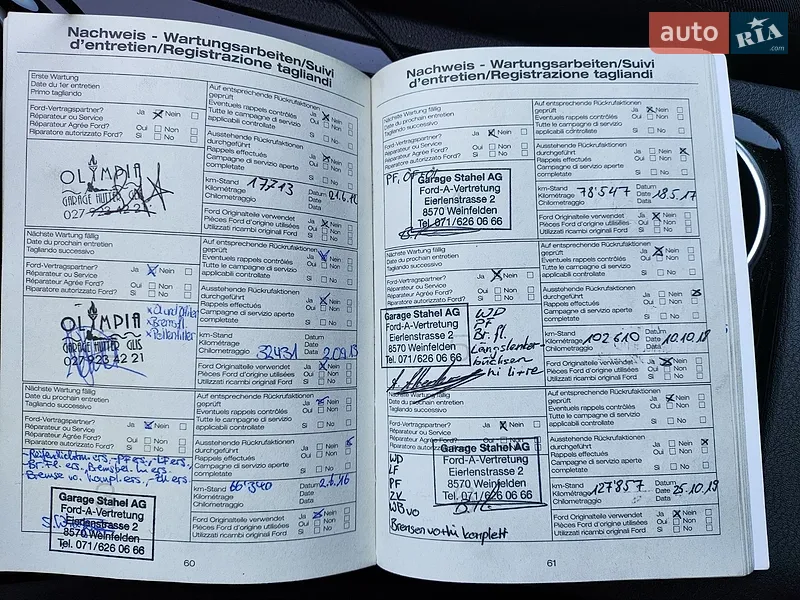 auto
RIA
.com
Nachweis - Wartungsarbeiten/Suivi
d'entretien/Registrazione tagliandi
Erste Wartung
Date du 1er entretien
Primo tagliando
Ford-Vertragspartner? Ja Nein
Réparateur ou Service Oui Non
Réparateur Agrée Ford? Si No
Riparatore autorizzato Ford?
Auf entsprechende Rückrufaktionen
geprüft Ja Nein
Eventuels rappels contrôlés Oui Non
Tutte le campagne di servizio
applicabili controllate Si No
Ausstehende Rückrufaktionen
durchgeführt Ja Nein
Rappels effectués Oui Non
Campagne di servizio aperte
completate Si No
OLYMPIA
GARAGE HUTTER GLIS
027 923 42 21
km-Stand
Kilométrage 17213
Chilometraggio
Datum
Date
Data
Ford Originalteile verwendet Ja Nein
Pièces Ford d'origine utilisées Oui Non
Utilizzati ricambi originali Ford Si No
Nächste Wartung fällig
Date du prochain entretien
Tagliando successivo
Ford-Vertragspartner? Ja Nein
Réparateur ou Service Oui Non
Réparateur Agrée Ford? Si No
Riparatore autorizzato Ford?
Auf entsprechende Rückrufaktionen
geprüft Ja Nein
Eventuels rappels contrôlés Oui Non
Tutte le campagne di servizio
applicabili controllate Si No
Ausstehende Rückrufaktionen
durchgeführt Ja Nein
Rappels effectués Oui Non
Campagne di servizio aperte
completate Si No
OLYMPIA
GARAGE HUTTER GLIS
027 923 42 21
x Bremsfl.
x Pollenfilter
km-Stand
Kilométrage 32431
Chilometraggio
Datum
Date
Data
Ford Originalteile verwendet Ja Nein
Pièces Ford d'origine utilisées Oui Non
Utilizzati ricambi originali Ford Si No
Nächste Wartung fällig
Date du prochain entretien
Tagliando successivo
Ford-Vertragspartner? Ja Nein
Réparateur ou Service Oui Non
Réparateur Agrée Ford? Si No
Riparatore autorizzato Ford?
Auf entsprechende Rückrufaktionen
geprüft Ja Nein
Eventuels rappels contrôlés Oui Non
Tutte le campagne di servizio
applicabili controllate Si No
Ausstehende Rückrufaktionen
durchgeführt Ja Nein
Rappels effectués Oui Non
Campagne di servizio aperte
completate Si No
Br. Fl. ers.
Garage Stahel AG
Ford-A-Vertretung
Eierlenstrasse 2
8570 Weinfelden
Tel. 071/626 06 66
km-Stand
Kilométrage 66'340
Chilometraggio
Datum 2.6.16
Date
Data
Ford Originalteile verwendet Ja Nein
Pièces Ford d'origine utilisées Oui Non
Utilizzati ricambi originali Ford Si No
60
Nachweis - Wartungsarbeiten/Suivi
d'entretien/Registrazione tagliandi
Nächste Wartung fällig
Date du prochain entretien
Tagliando successivo
Ford-Vertragspartner? Ja Nein
Réparateur ou Service Oui Non
Réparateur Agrée Ford? Si No
Riparatore autorizzato Ford?
Auf entsprechende Rückrufaktionen
geprüft Ja Nein
Eventuels rappels contrôlés Oui Non
Tutte le campagne di servizio
applicabili controllate Si No
Ausstehende Rückrufaktionen
durchgeführt Ja Nein
Rappels effectués Oui Non
Campagne di servizio aperte
completate Si No
PF,
Garage Stahel AG
Ford-A-Vertretung
Eierlenstrasse 2
8570 Weinfelden
Tel. 071/626 06 66
km-Stand
Kilométrage 78'547
Chilometraggio
Datum
Date 18.5.17
Data
Ford Originalteile verwendet Ja Nein
Pièces Ford d'origine utilisées Oui Non
Utilizzati ricambi originali Ford Si No
Nächste Wartung fällig
Date du prochain entretien
Tagliando successivo
Ford-Vertragspartner? Ja Nein
Réparateur ou Service Oui Non
Réparateur Agrée Ford? Si No
Riparatore autorizzato Ford?
Auf entsprechende Rückrufaktionen
geprüft Ja Nein
Eventuels rappels contrôlés Oui Non
Tutte le campagne di servizio
applicabili controllate Si No
Ausstehende Rückrufaktionen
durchgeführt Ja Nein
Rappels effectués Oui Non
Campagne di servizio aperte
completate Si No
Garage Stahel AG
Ford-A-Vertretung
Eierlenstrasse 2
8570 Weinfelden
Tel. 071/626 06 66
WD
PF
Br. fl.
Längslenker-
büchsen
hi li + re
km-Stand
Kilométrage 102610
Chilometraggio
Datum
Date 10.10.18
Data
Ford Originalteile verwendet Ja Nein
Pièces Ford d'origine utilisées Oui Non
Utilizzati ricambi originali Ford Si No
Nächste Wartung fällig
Date du prochain entretien
Tagliando successivo
Ford-Vertragspartner? Ja Nein
Réparateur ou Service Oui Non
Réparateur Agrée Ford? Si No
Riparatore autorizzato Ford?
Auf entsprechende Rückrufaktionen
geprüft Ja Nein
Eventuels rappels contrôlés Oui Non
Tutte le campagne di servizio
applicabili controllate Si No
Ausstehende Rückrufaktionen
durchgeführt Ja Nein
Rappels effectués Oui Non
Campagne di servizio aperte
completate Si No
WD
LF
PF
ZV
WB vo
Bremsen vo+hi komplett
Garage Stahel AG
Ford-A-Vertretung
Eierlenstrasse 2
8570 Weinfelden
Tel. 071/626 06 66
km-Stand
Kilométrage 127857
Chilometraggio
Datum
Date 25.10.19
Data
Ford Originalteile verwendet Ja Nein
Pièces Ford d'origine utilisées Oui Non
Utilizzati ricambi originali Ford Si No
61